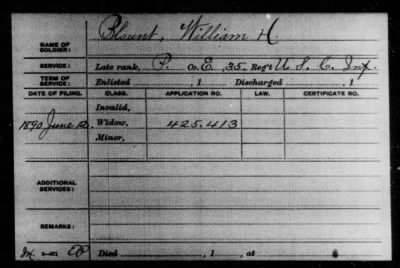 Blount, William H
NAME OF SOLDIER:
SERVICE: Late rank, P. Co. E, 35 Reg't U. S. C. Inf.
TERM OF SERVICE: Enlisted , 1 Discharged , 1
DATE OF FILING. CLASS. APPLICATION NO. LAW. CERTIFICATE NO.
Invalid,
1890 June 12. Widow, 425.413
Minor,
ADDITIONAL SERVICES:
REMARKS:
Died , 1 , at